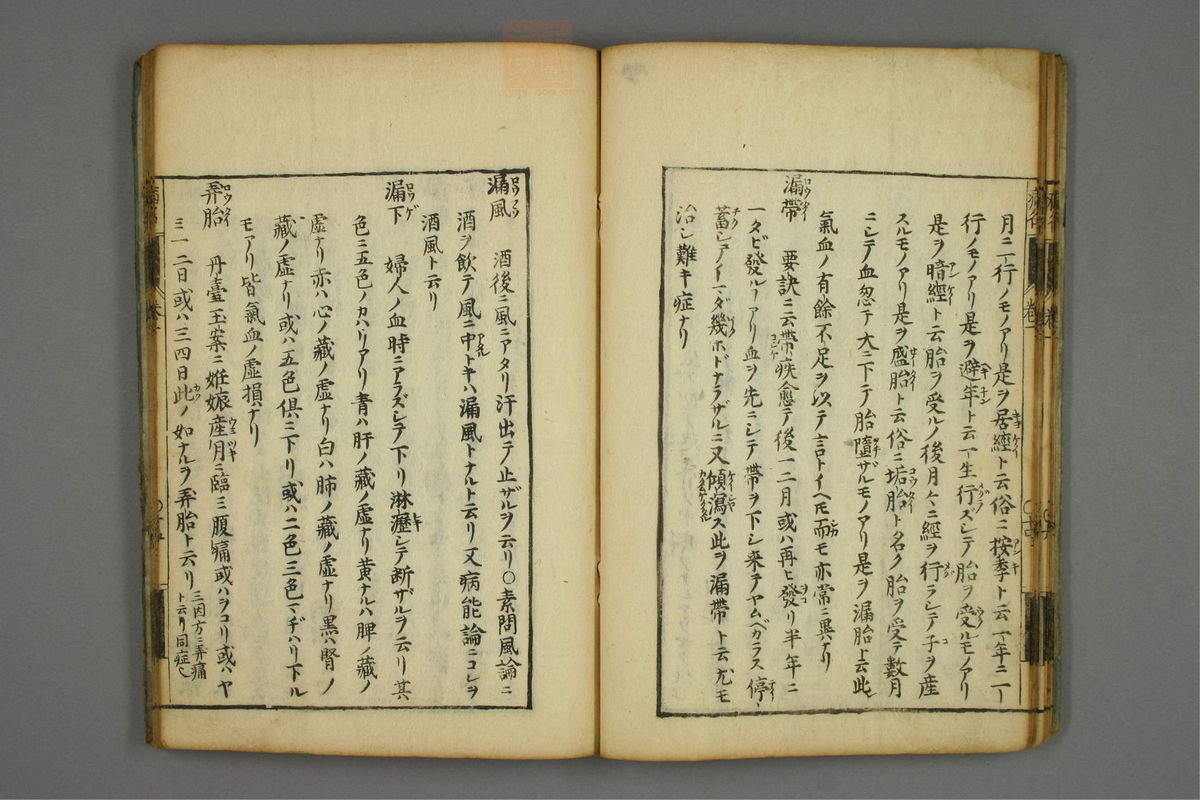 月ニ一行ノモノアリ是ヲ居經ト云俗ニ按季ト云一年ニ一
行ノモノアリ是ヲ避年ト云一生行ズシテ胎ヲ受ルモノアリ
是ヲ暗經ト云胎ヲ受ルノ後月々ニ經ヲ行ラシテ子ヲ産
スルモノアリ是ヲ盛胎ト云俗ニ垢胎ト名ク胎ヲ受テ數月
ニシテ血忽テ大ニ下テ胎墮ザルモノアリ是ヲ漏胎ト云此レ
氣血ノ有餘不足ヲ以テ言トイヘモ而モ亦常ニ異ハナリ
漏帶 要訣ニ云帶疾愈テ後一二月或ハ再ヒ發リ半年ニ
一タビ發ルヿアリ血ヲ先ニシテ帶ヲ下シ来テヤムベガラス停
蓄シテイマダ幾ホドナラザルニ又傾瀉ス此ヲ漏帶ト云尤モ
治シ難キ症ナリ
漏風 酒後ニ風ニアタリ汗出テ止ザルヲ云リ○素問風論ニ
酒ヲ飲テ風ニ中トキハ漏風トナルト云リ又病能論ニコレヲ
酒風ト云リ
漏下 婦人ノ血時ニアラズシテ下リ淋瀝シテ断ザルヲ云リ其
色ニ五色ノカハリアリ青ハ肝ノ藏ノ虚ナリ黄ナルハ脾ノ藏ノ
虚ナリ赤ハ心ノ藏ノ虚ナリ白ハ肺ノ藏ノ虚ナリ黒ハ腎ノ
藏ノ虚ナリ或ハ五色倶ニ下リ或ハ二色三色マヂハリ下ル
モアリ皆氣血ノ虚損ナリ
弄胎 丹臺玉案ニ姙娠産月ニ臨ミ腹痛或ハヲコリ或ハヤ
ミ一二日或ハ三四日此ノ如ナルヲ弄胎ト云リ三因方ニ弄痛
ト云リ同症也